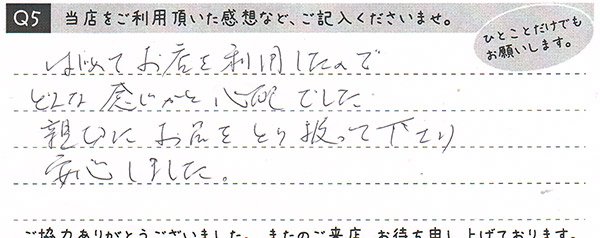 Q5 当店をご利用頂いた感想など、ご記入くださいませ。
ひとことだけでも
お願いします。
はじめてお店を利用したので
どんな感じかと心配でした
親切にお品をとり扱って下さり
安心しました。
ご協力ありがとうございました。またのご来店、お待ち申し上げております。